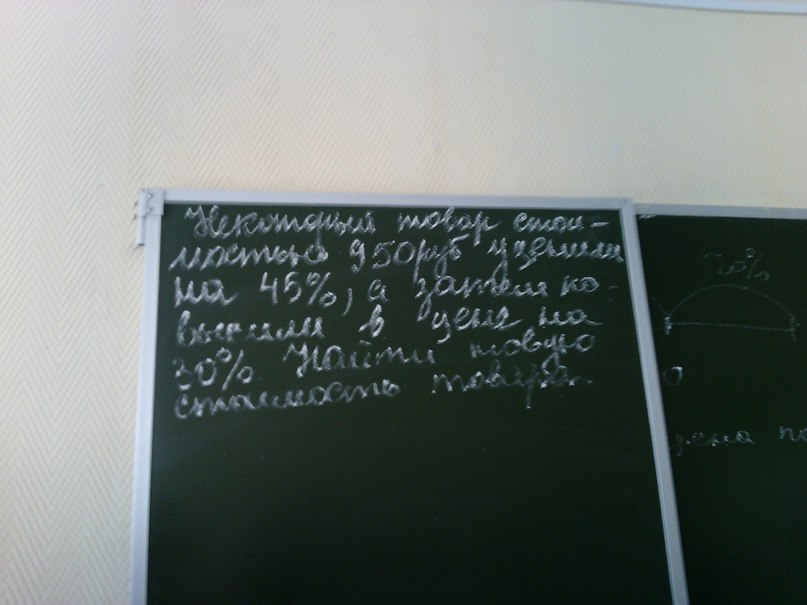 Некоторый товар стои-
мостью 950руб уценили
на 45%, а затем по-
высили в цене на
30%. Найти новую
стоимость товара.
20%
0
цена по